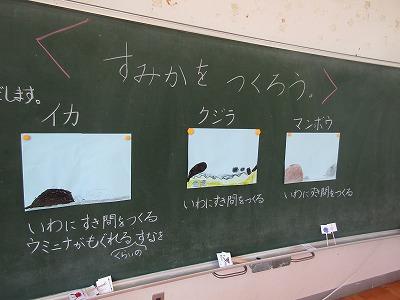 < すみかを つくろう。>
だします。
イカ
クジラ
マンボウ
いわに すき間をつくる
ウミニナがもぐれる すなを
くらいの
いわにすき間をつくる
いわに すき間をつくる